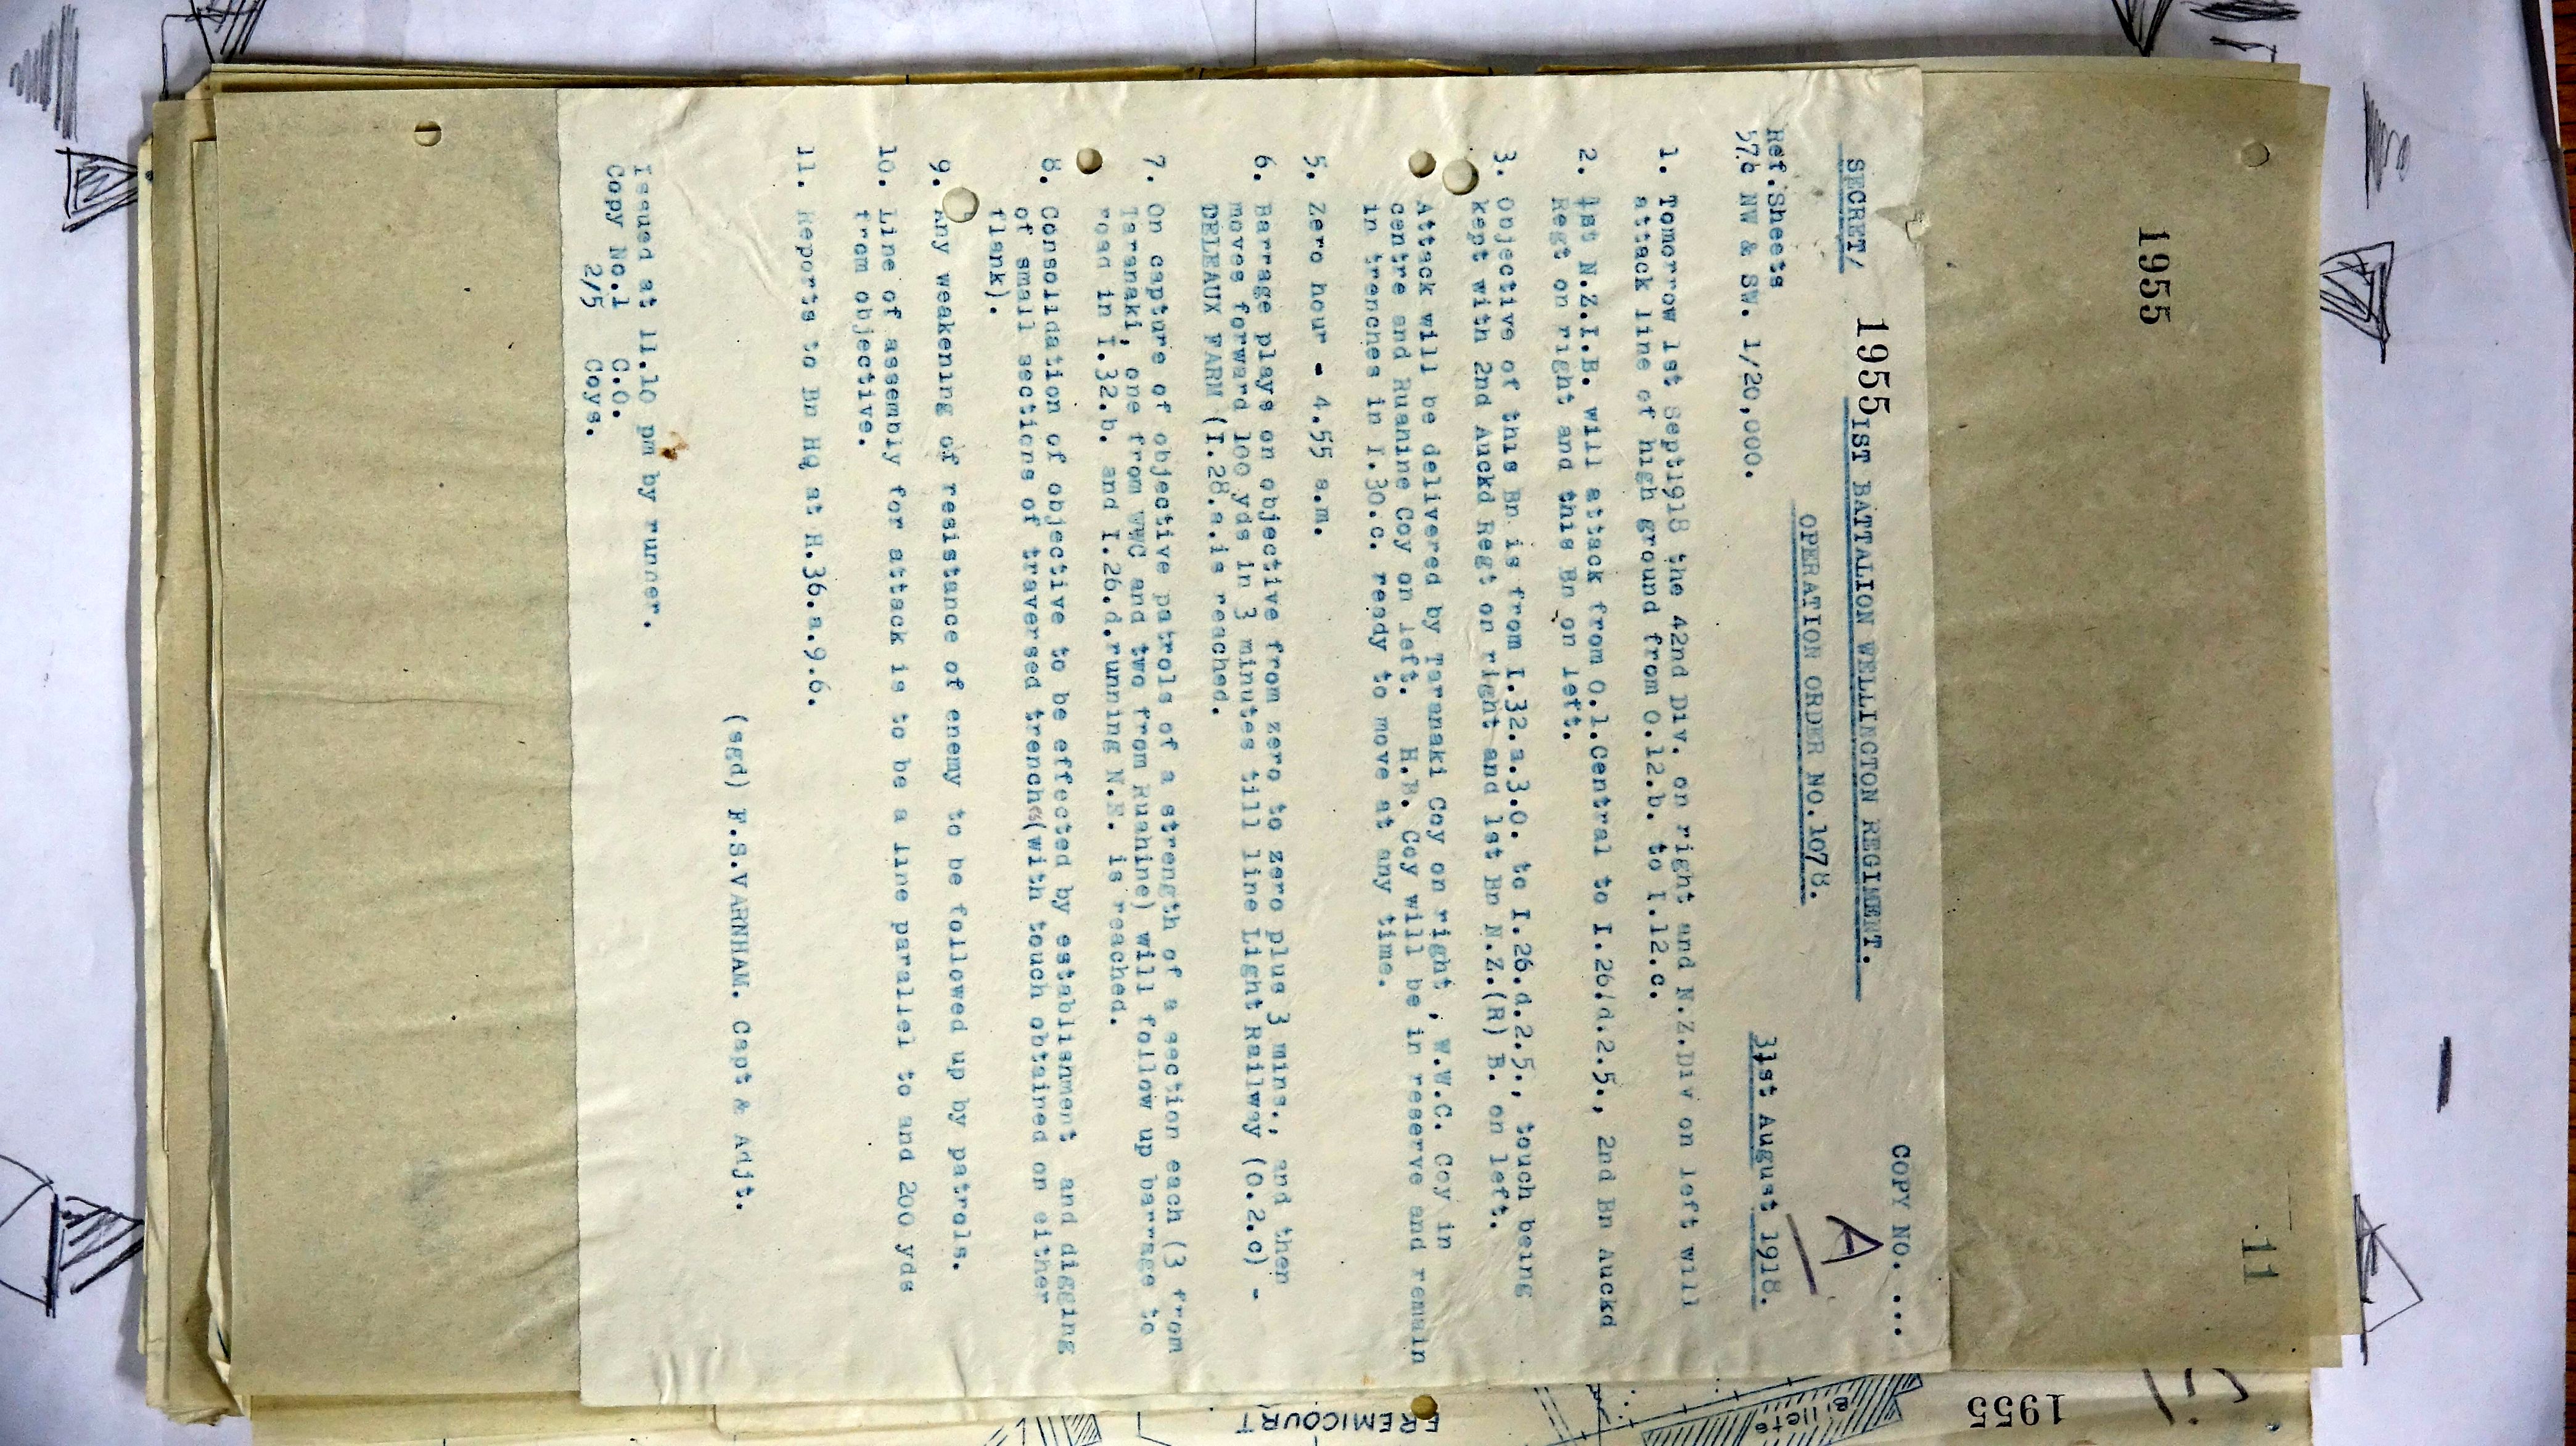 1955
11
COPY NO. ...
SECRET/ 1955 1ST BATTALION WELLINGTON REGIMENT.
A
OPERATION ORDER NO.1078.
Ref.Sheets
57c NW & SW. 1/20,000.
31st August 1918.
1. Tomorrow 1st Sept1918 the 42nd Div. on right and N.Z.Div on left will
attack line of high ground from O.12.b. to I.12.c.
2. 1st N.Z.I.B. will attack from O.1.Central to I.26/d.2.5., 2nd Bn Auckd
Regt on right and this Bn on left.
3. Objective of this Bn is from I.32.a.3.0. to I.26.d.2.5., touch being
kept with 2nd Auckd Regt on right and 1st Bn N.Z.(R) B. on left.
Attack will be delivered by Taranaki Coy on right, W.W.C. Coy in
centre and Ruahine Coy on left. H.B. Coy will be in reserve and remain
in trenches in I.30.c. ready to move at any time.
5. Zero hour - 4.55 a.m.
6. Barrage plays on objective from zero to zero plus 3 mins., and then
moves forward 100 yds in 3 minutes till line Light Railway (O.2.c) -
DELEAUX FARM (I.28.a.is reached.
7. On capture of objective patrols of a strength of a section each (3 from
Taranaki, one from WWC and two from Ruahine) will follow up barrage to
road in I.32.b. and I.26.d.running N.E. is reached.
8. Consolidation of objective to be effected by establishment and digging
of small sections of traversed trenches(with touch obtained on either
flank).
9. Any weakening of resistance of enemy to be followed up by patrols.
10. Line of assembly for attack is to be a line parallel to and 200 yds
from objective.
11. Reports to Bn HQ at H.36.a.9.6.
(sgd) F.S.VARNHAM. Capt & Adjt.
Issued at 11.10 pm by runner.
Copy No.1 C.O.
2/5 Coys.
1955
Billets
FREMICOURT